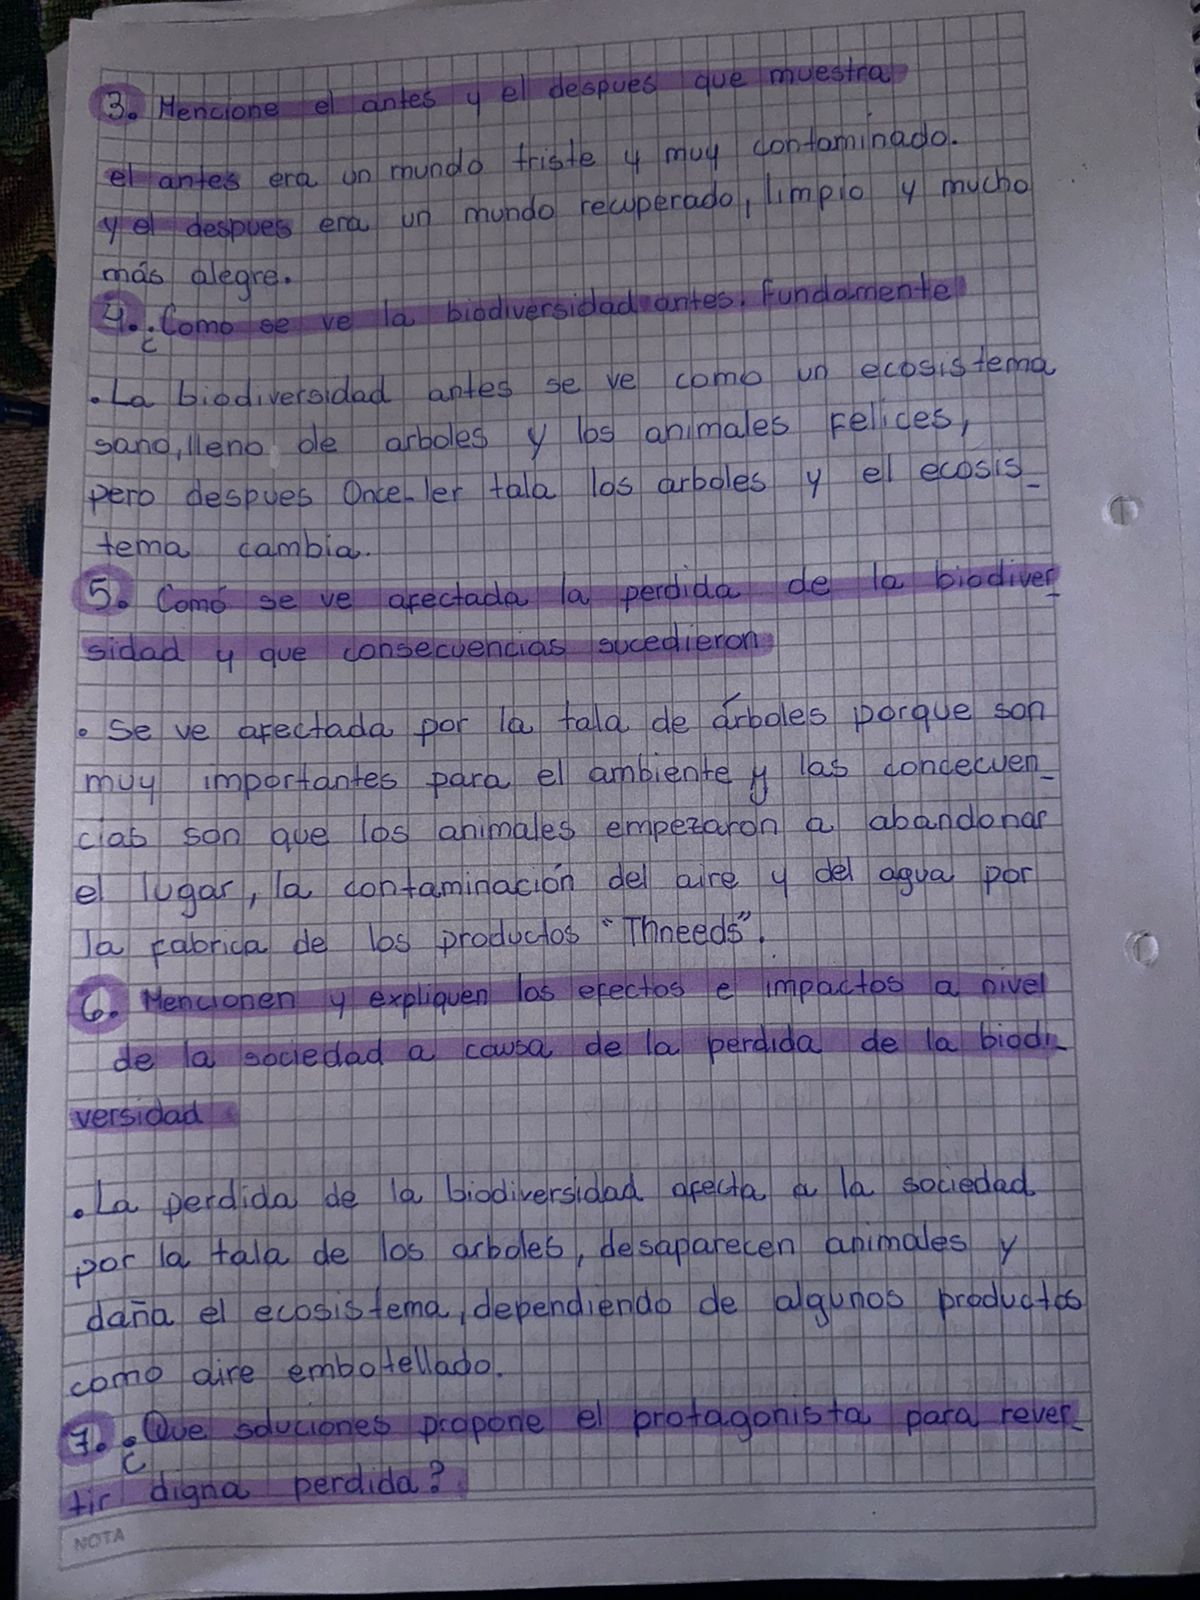 3. Mencione el antes y el despues que muestra
el antes era un mundo triste y muy contaminado.
y el despues era un mundo recuperado, limpio y mucho
más alegre.
4. ¿Como se ve la biodiversidad antes. Fundamente
. La biodiversidad antes se ve como un ecosistema
sano, lleno de arboles y los animales Felices,
pero despues Once-ler tala los arboles y el ecosis_
tema cambia.
5. Comó se ve afectada la perdida de la biodiver_
sidad y que consecuencias sucedieron
. Se ve afectada por la tala de árboles porque son
muy importantes para el ambiente y las concecuen_
cias son que los animales empezaron a abandonar
el lugar, la contaminación del aire y del agua por
la fabrica de los productos "Thneeds".
6. Mencionen y expliquen los efectos e impactos a nivel
de la sociedad a causa de la perdida de la biodi_
versidad
. La perdida de la biodiversidad afecta a la sociedad
por la tala de los arboles, desaparecen animales y
daña el ecosistema, dependiendo de algunos productos
como aire embotellado.
7. ¿Que soluciones propone el protagonista para rever_
tir digna perdida?
NOTA